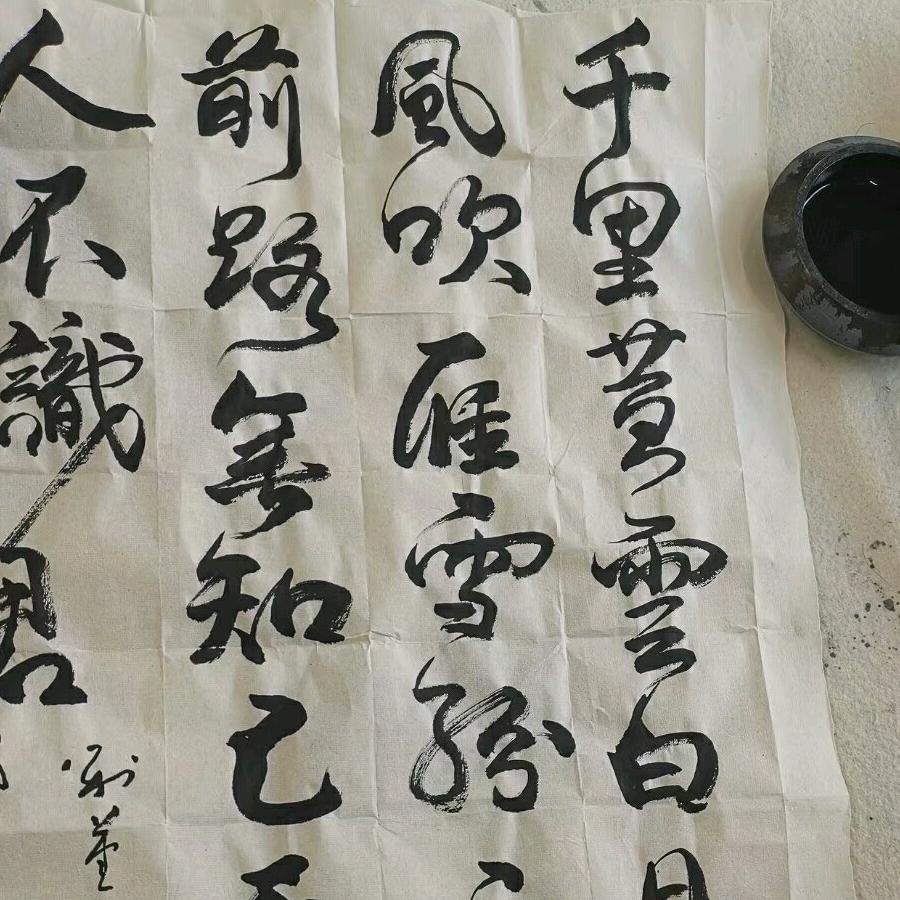 千里黄雲白日
風吹雁雪紛
前路無知己
人不識君
别董